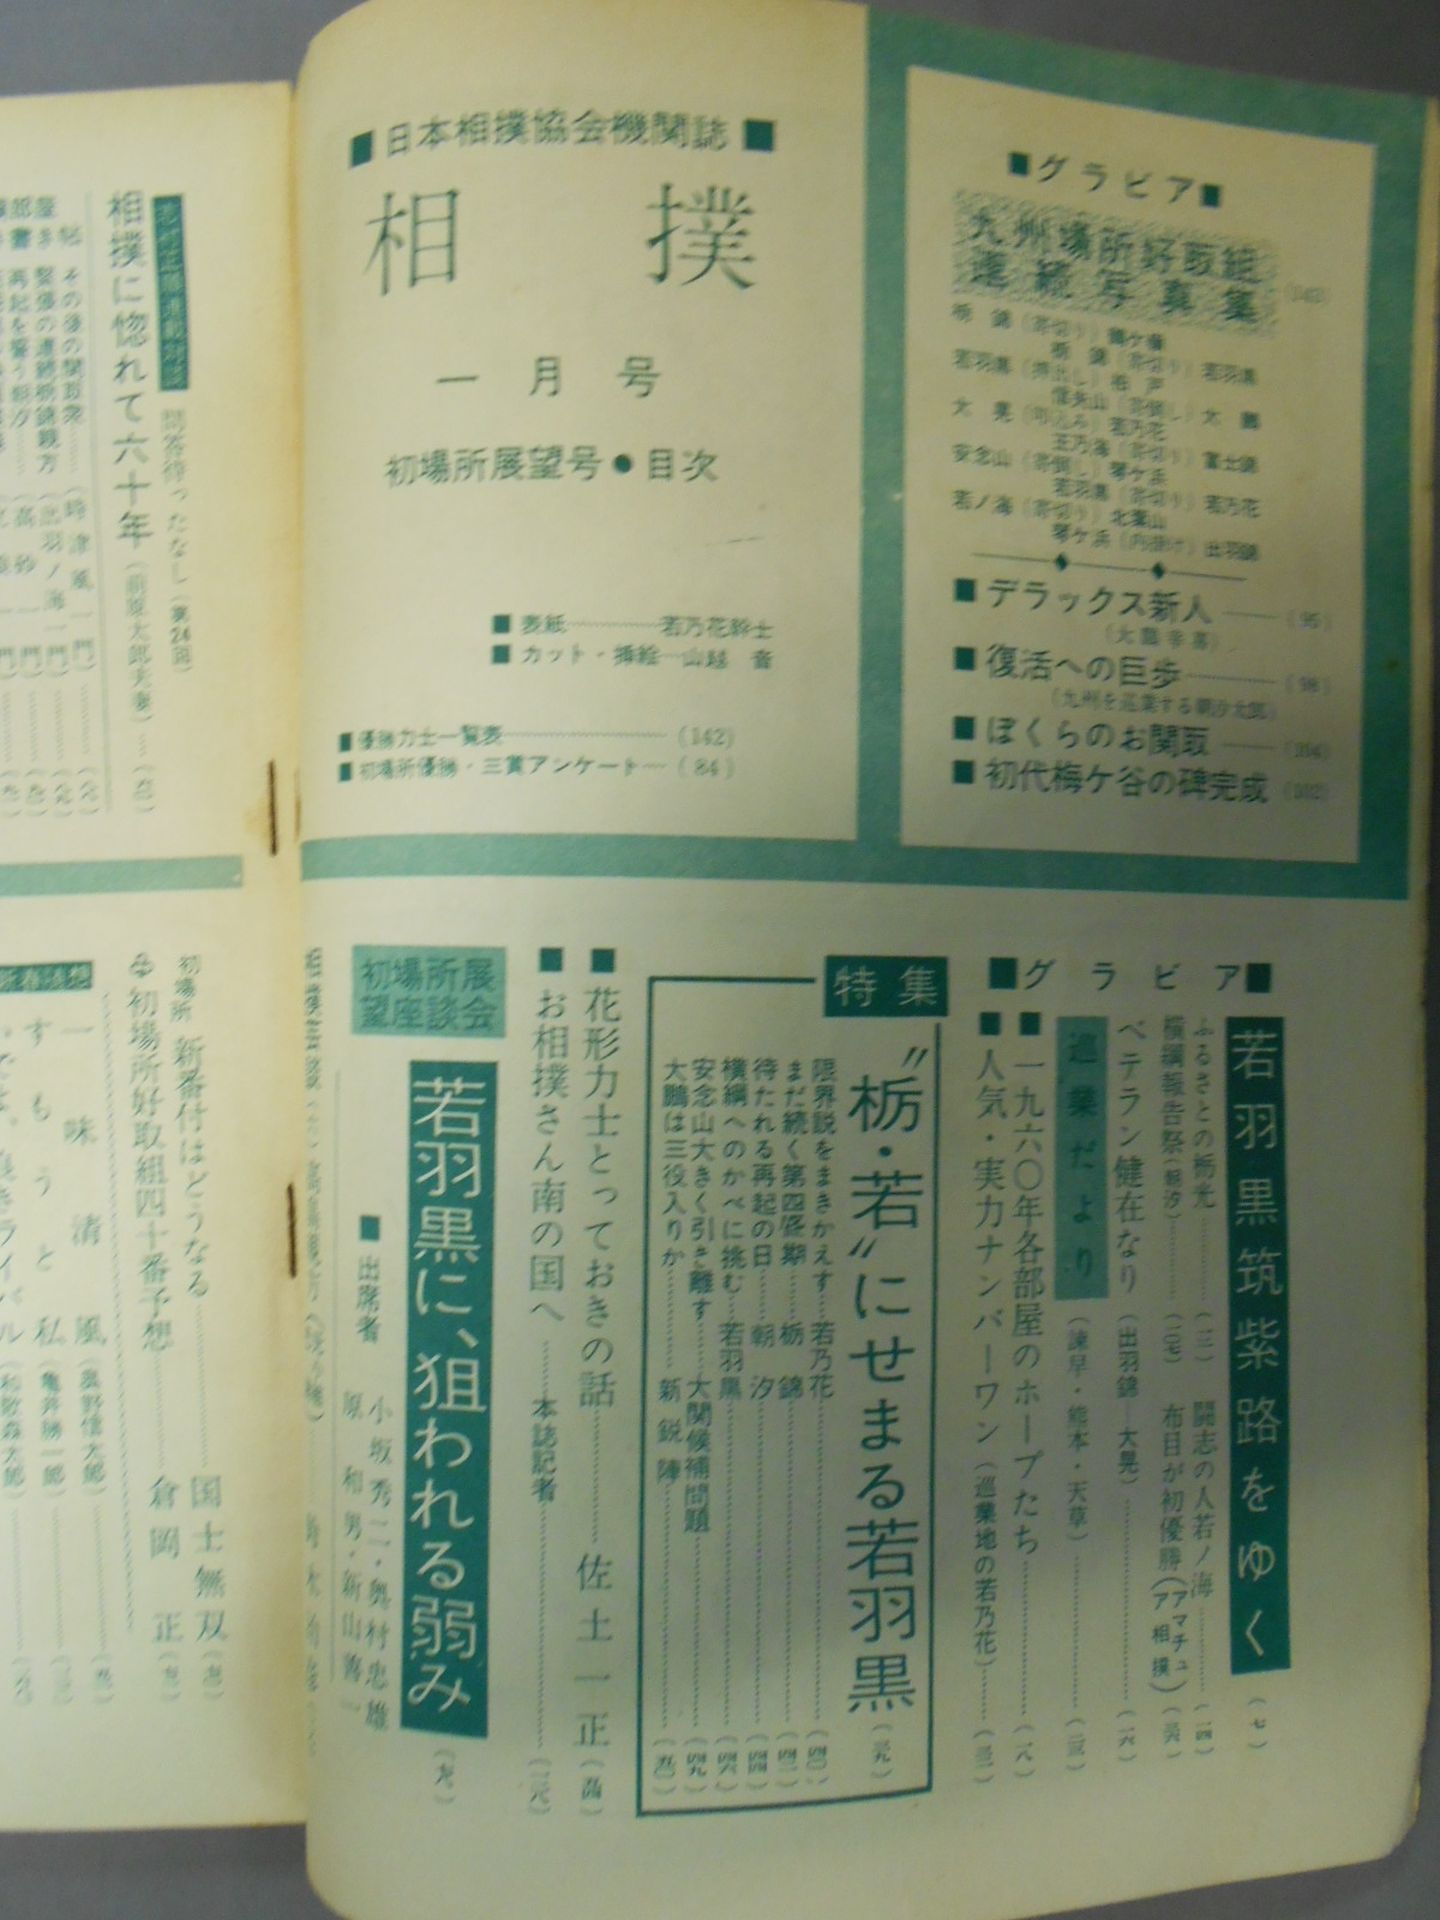 ■日本相撲協会機関誌■
相撲
一月号
初場所展望号●目次
■表紙…………若乃花幹士
■カット・挿絵…山越 音
■優勝力士一覧表…………(142)
■初場所優勝・三賞アンケート…(84)
■グラビア■
九州場所好取組
連続写真集
栃錦(寄切り)鶴ケ嶺
栃錦(寄切り)若羽黒
若羽黒(押出し)柏戸
信夫山(寄倒し)大鵬
大晃 若乃花
王乃海(寄切り)富士錦
安念山(寄倒し)琴ケ浜
若羽黒(寄切り)若乃花
若ノ海(寄切り)北葉山
琴ケ浜(内掛け)出羽錦
■デラックス新人——(95)
■復活への巨歩…………(98)
(九州を巡業する朝汐太郎)
■ぼくらのお関取——(104)
■初代梅ケ谷の碑完成(102)
■グラビア■
若羽黒筑紫路をゆく(七)
ふるさとの栃光…………(三)
闘志の人若ノ海…………(一四)
横綱報告祭(朝汐)…………(二七)
布目が初優勝(アマチュア相撲)(三六)
ベテラン健在なり(出羽錦—大晃)…………(一六)
巡業だより(諫早・熊本・天草)…………(二三)
■一九六〇年各部屋のホープたち…………(一八)
■人気・実力ナンバーワン(巡業地の若乃花)……(三二)
特集
“栃・若”にせまる若羽黒(三九)
限界説をまきかえす…若乃花…………(四〇)
まだ続く第四盛期……栃錦…………(四二)
待たれる再起の日……朝汐…………(四四)
横綱へのかべに挑む…若羽黒…………(四六)
安念山大きく引き離す……大関候補問題…………(四九)
大鵬は三役入りか………新鋭陣…………(五〇)
■花形力士とっておきの話…………佐土一正(五四)
■お相撲さん南の国へ…………本誌記者…………
初場所展望座談会
若羽黒に、狙われる弱み
■出席者 小坂秀二・奥村忠雄
原和男・新山善一
初場所 新番付はどうなる…………国士無双
初場所好取組四十番予想…………倉岡正
新春随想
一味清風(奥野信太郎)…………
すもうと私(亀井勝一郎)…………
問答待ったなし(第24回)
相撲に惚れて六十年
その後の関取衆……(時津風一門)
緊褌の連続栃錦親方(出羽ノ海一門)
再起を誓う朝汐……(高砂一門)